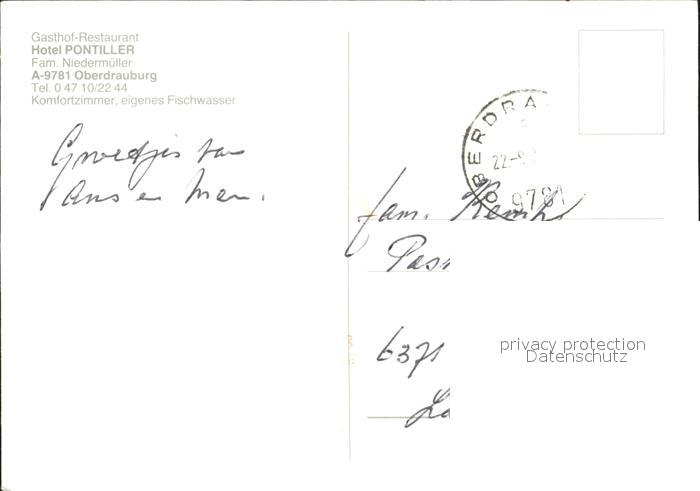 Gasthof-Restaurant
Hotel PONTILLER
Fam. Niedermüller
A-9781 Oberdrauburg
Tel. 0 47 10/22 44
Komfortzimmer, eigenes Fischwasser
Groetjes van
Ans en
OBERDRA
22-9
9781
fam.
Pass
6371
La
privacy protection
Datenschutz